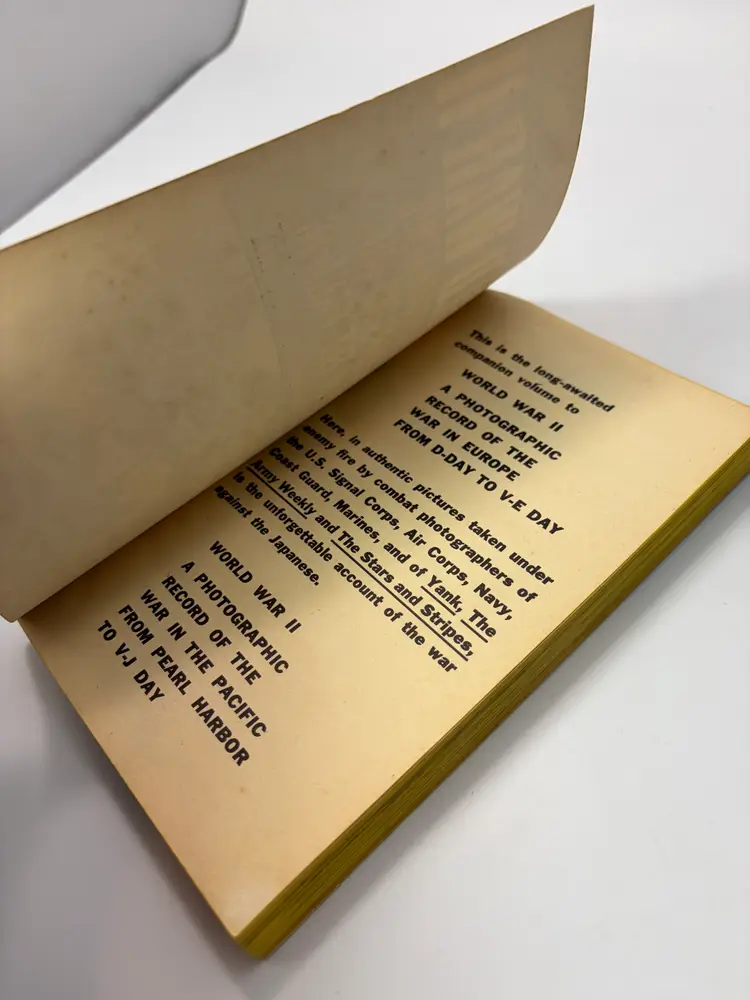 This is the long-awaited
companion volume to
WORLD WAR II
A PHOTOGRAPHIC
RECORD OF THE
WAR IN EUROPE
FROM D-DAY TO V-E DAY
Here, in authentic pictures taken under
enemy fire by combat photographers of
the U.S. Signal Corps, Air Corps, Navy,
Coast Guard, Marines, and of Yank, The
Army Weekly and The Stars and Stripes,
is the unforgettable account of the war
against the Japanese.
WORLD WAR II
A PHOTOGRAPHIC
RECORD OF THE
WAR IN THE PACIFIC
FROM PEARL HARBOR
TO V-J DAY